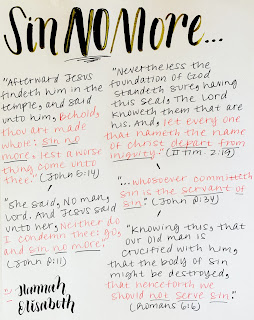 Sin NO More...
"Afterward Jesus
findeth him in the
temple, and said
unto him, Behold,
thou art made
whole: sin no
more, lest a worse
thing come unto
thee." (John 5:14)
"She said, No man,
Lord. And Jesus said
unto her, Neither do
I condemn thee: go,
and sin no more."
(John 8:11)
Hannah
Elisabeth
"Nevertheless the
foundation of God
standeth sure, having
this seal, The Lord
knoweth them that are
his. And, let every one
that nameth the name
of Christ depart from
iniquity." (II Tim. 2:19)
"...whosoever committeth
sin is the servant of
sin." (John 8:34)
"Knowing this, that
our old man is
crucified with him,
that the body of sin
might be destroyed,
that henceforth we
should not serve sin."
(Romans 6:6)